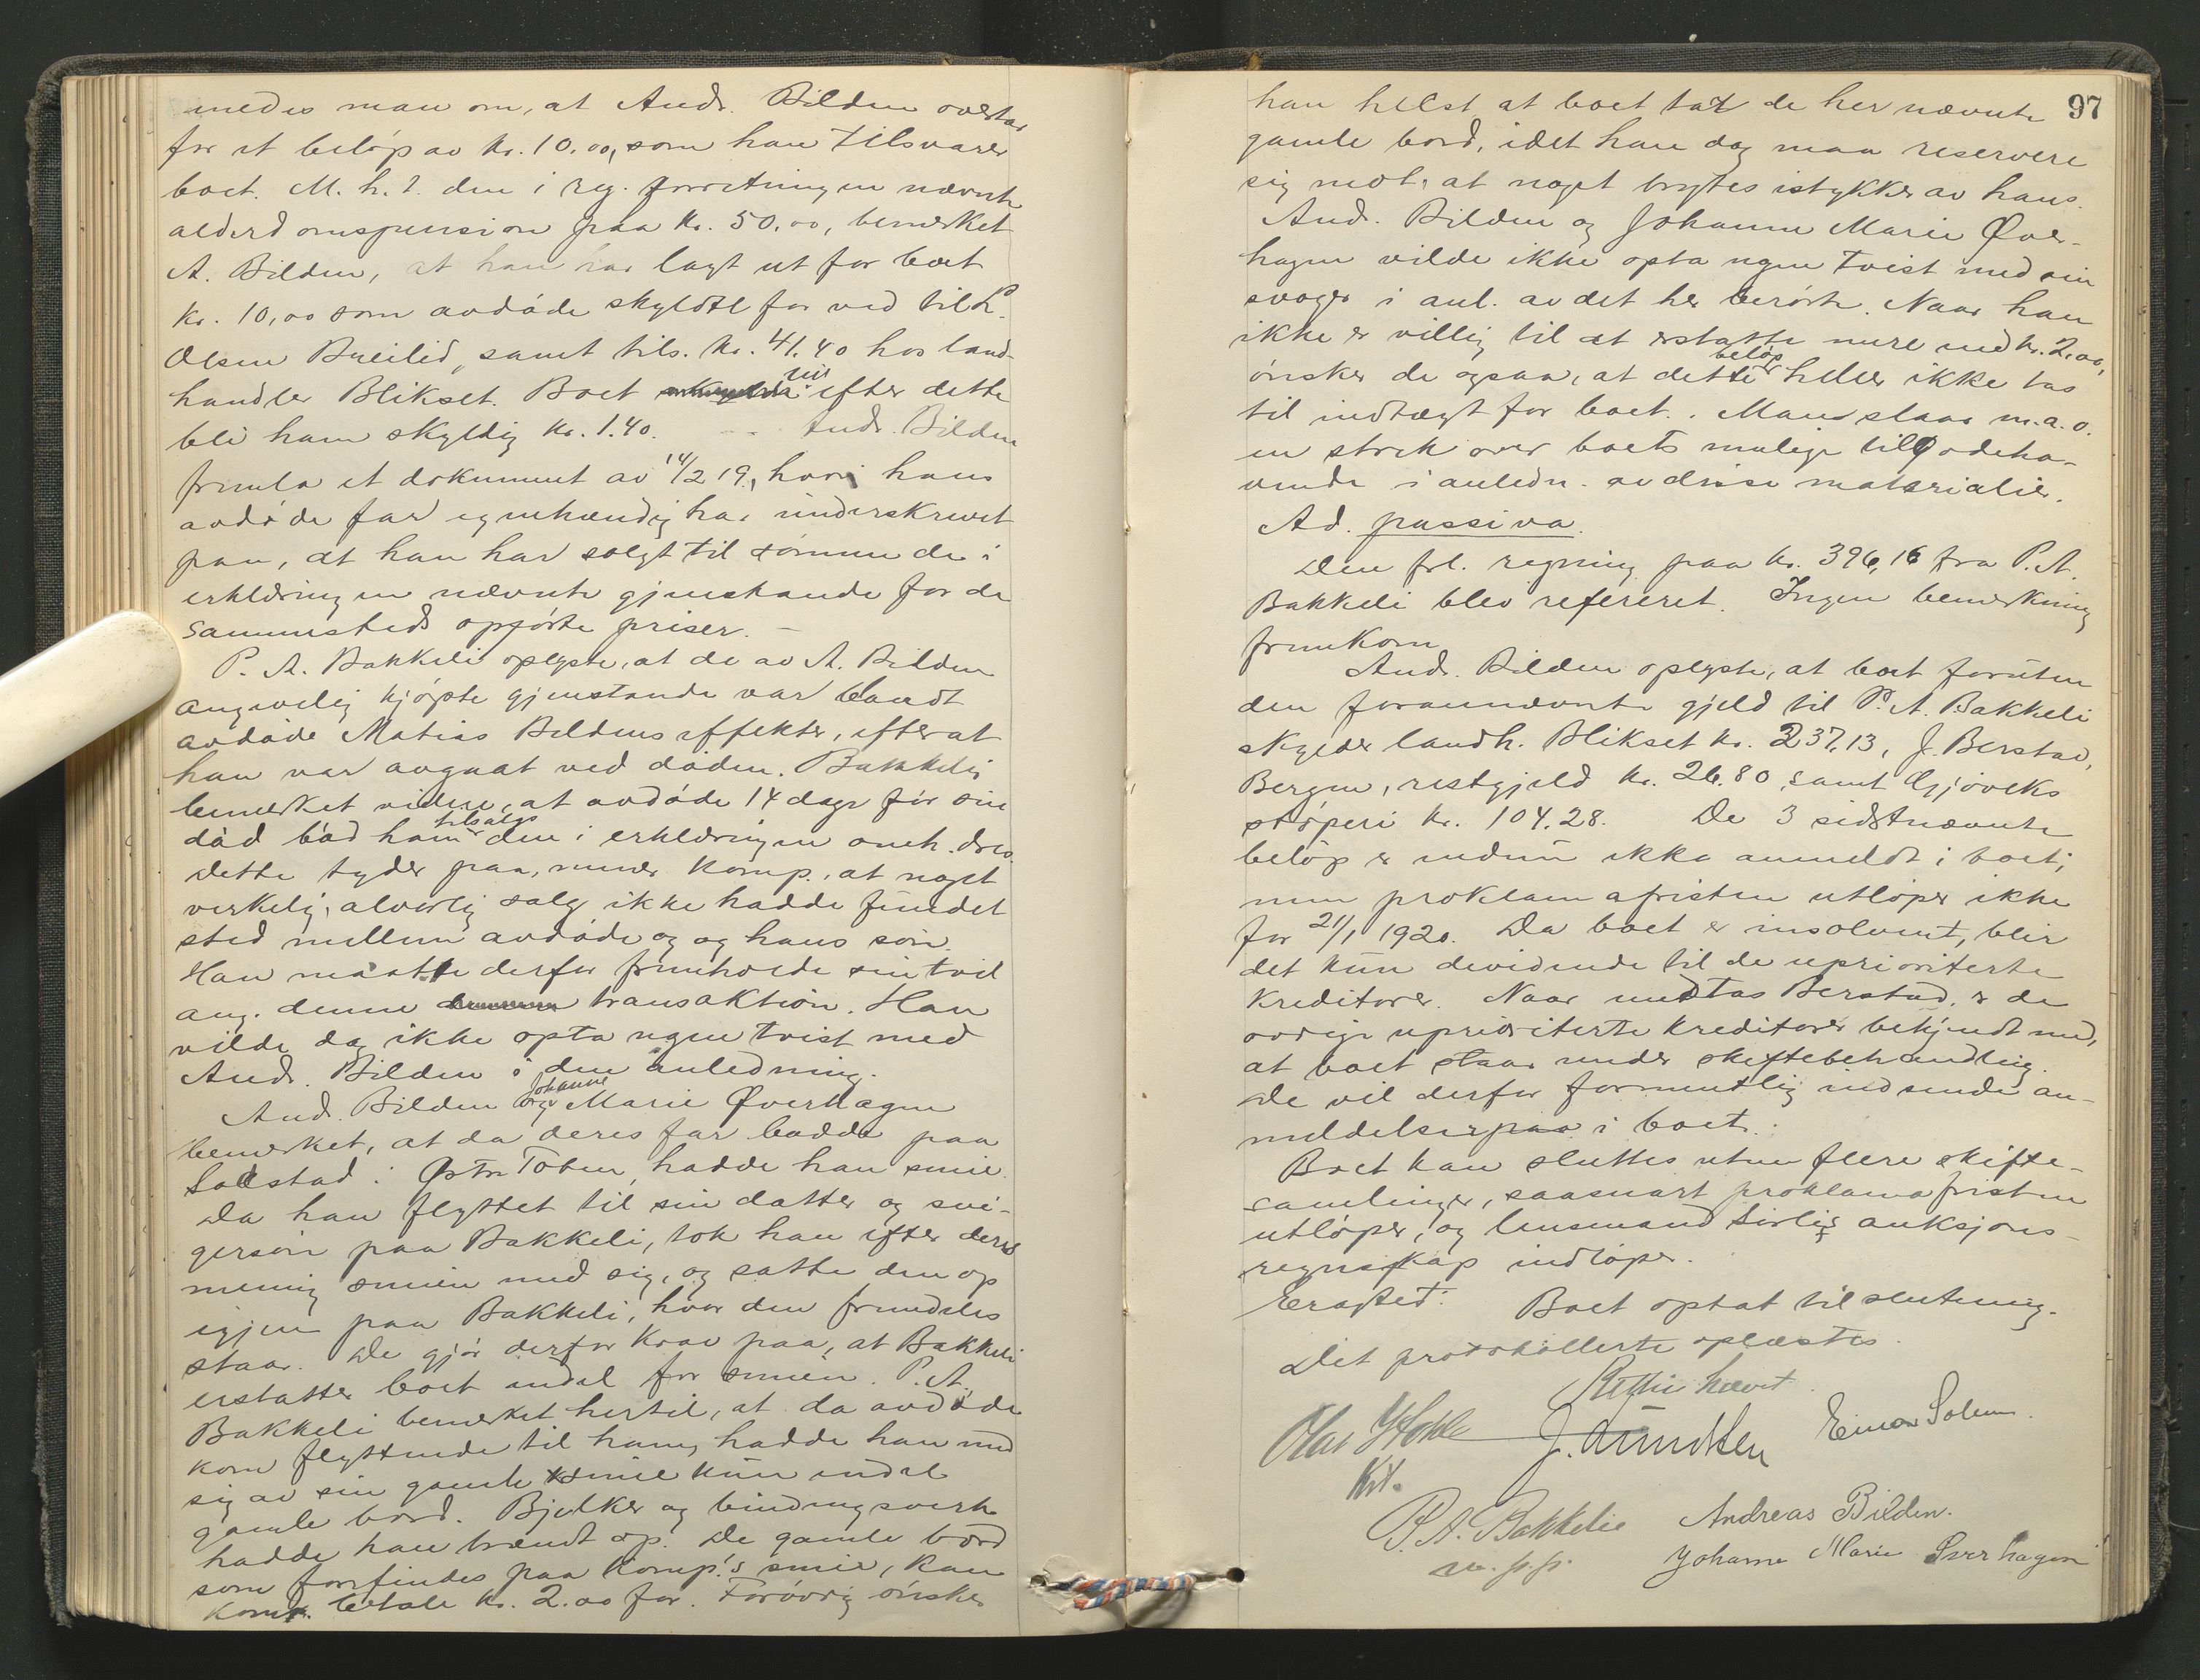 medes man om, at Andr. Bilden overtar
for et beløp av kr. 10.00, som han tilsvarer
boet. M. h. t. den i reg. forretningen nævnte
alderdomspension paa kr. 50,00, bemerket
A. Bilden, at han har lagt ut for boet
kr. 10,00 som avdøde skyldte for ved til P.
Olsen Breilid, samt tils. kr. 41.40 hos land-
handler Blikset. Boet vil efter dette
bli ham skyldig kr. 1.40. Andr. Bilden
fremla et dokument av 14/2 19., hvori hans
avdøde far egenhændig har underskrevet
paa, at han har solgt til sønnen de i
erklæringen nævnte gjenstande for de
sammesteds opførte priser. –
P. A. Bakkeli oplyste, at de av A. Bilden
angivelig kjøpte gjenstande var blandt
avdøde Matias Bildens effekter, efter at
han var avgaat ved døden. Bakkeli
bemerket videre, at avdøde 14 dage før sin
død bød ham tilsalgs den i erklæringen omh. dres.
Dette tyder paa, mener komp., at noget
verkelig, alvorlig salg ikke hadde fundet
sted mellem avdøde og og hans søn.
Han maatte derfor fremholde sin tvil
ang. denne transaktion. Han
vilde dog ikke opta ngen tvist med
Andr. Bilden i den anledning.
And. Bilden og Johanne Marie Øverhagen
bemerket, at da deres far bodde paa
Solstad i Østre Toten, hadde han smie.
Da han flyttet til sin datter og svi-
gersøn paa Bakkeli, tok han efter deres
mening smien med sig, og satte den op
igjen paa Bakkeli, hvor den fremdeles
staar. De gjør derfor krav paa, at Bakkeli
erstatter boet endel for smien. P. A.
Bakkeli bemerket hertil, at da avdøde
kom flyttende til ham, hadde han med
sig av sin gamle smie kun endel
gamle bord. Bjelker og bindingsverk
hadde han brændt op. De gamle bord
som forefindes paa komp.'s smie, kan
komp. betale kr. 2.00 for. Forøvrig ønsker
97
han helst at boet tar de her nævnte
gamle bord, idet han dog maa reservere
sig mot, at noget brytes istykker av hans.
And. Bilden og Johanne Marie Øver-
hagen vilde ikke opta ngen tvist med sin
svoger i anl. av det her berørte. Naar han
ikke er villig til at erstatte mere end kr. 2.00,
ønsker de ogsaa, at dette beløp heller ikke tas
til indtægt for boet. Man slaar m.a.o.
en strek over boets mulige tilgodeha-
vende i anledn. av disse materialier.
Ad. passiva.
Den frl. regning paa kr. 396,16 fra P. A.
Bakkeli blev refereret. Ingen bemerkning
fremkom.
Andr. Bilden oplyste, at boet foruten
den forannævnte gjeld til P. A. Bakkeli
skylder landh. Blikset kr. 237,13, J. Berstad,
Bergen, restgjeld kr. 26.80, samt Gjøviks
støperi kr. 104.28. De 3 sidstnævnte
beløp er endnu ikke anmeldt i boet;
men proklamafristen utløper ikke
før 21/1 1920. Da boet er insolvent, blir
det kun devidende til de uprioriterte
kreditorer. Naar undtas Berstad, er de
øvrige uprioriterte kreditorer bekjendt med,
at boet staar under skiftebehandling.
De vil derfor formentlig indsende an-
meldelser i boet.
Boet kan sluttes uten flere skifte-
samlinger, saasnart proklamafristen
utløper, og lensmand auksjons-
regnskap indløper.
Eragtet: Boet optat til slutning.
Det protokollerte oplæstes.
Retten hævet.
J. Amundsen Einar Solem.
P. A. Bakkelie Andreas Bilden.
m. p. p. Johanne Marie Øverhagen